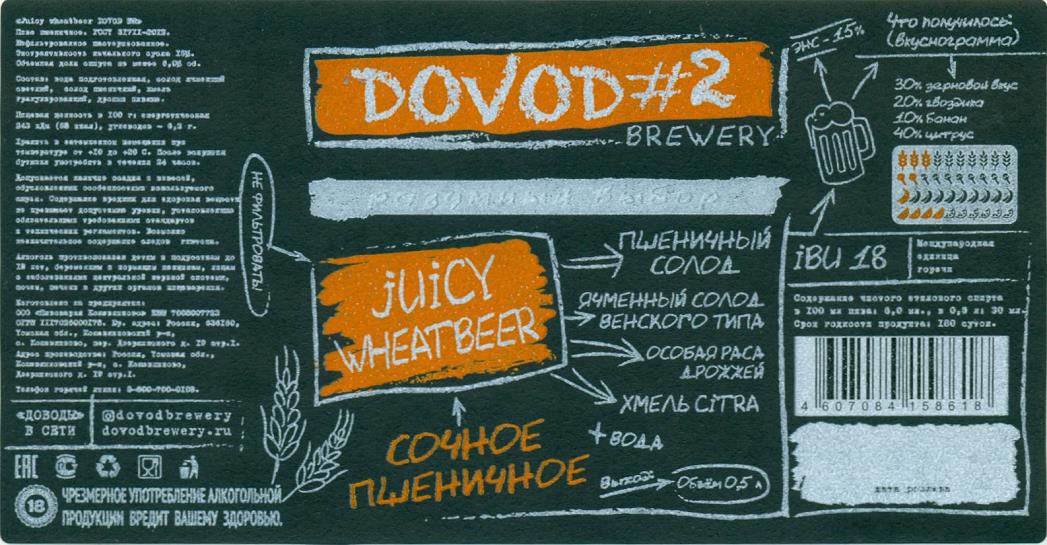 «Juicy wheatbeer DOVOD №2»
Пиво пшеничное. ГОСТ 31711-2012.
Нефильтрованное пастеризованное.
Экстрактивность начального сусла 15%.
Объемная доля спирта не менее
Состав: вода подготовленная, солод ячменный
светлый, солод пшеничный, хмель
гранулированный, дрожжи пивные.
Пищевая ценность в 100 г: энергетическая
углеводов
Хранить в затемненном помещении при
температуре от +10 до +20 С. После вскрытия
бутылки употребить в течении 24 часов.
Допускается наличие осадка и взвесей,
обусловленных особенностями используемого
сырья. Содержание вредных для здоровья веществ
не превышает допустимые уровни, установленные
обязательными требованиями стандартов
и технических регламентов. Возможно
незначительное содержание следов глютена.
Алкоголь противопоказан детям и подросткам до
18 лет, беременным и кормящим женщинам, лицам
с заболеваниями центральной нервной системы,
почек, печени и других органов пищеварения.
Изготовлено на предприятии:
ООО
Юр. адрес: Россия, 636160,
Томская обл., Кожевниковский р-н,
с. Кожевниково, пер. Дзержинского д. 19 стр.1.
Адрес производства: Россия, Томская обл.,
Кожевниковский р-н, с. Кожевниково,
Дзержинского д. 19 стр.1.
Телефон горячей линии: 8-800-700-0108.
«ДОВОДЫ»
В СЕТИ
dovodbrewery
dovodbrewery.ru
EAC
18
ЧРЕЗМЕРНОЕ УПОТРЕБЛЕНИЕ АЛКОГОЛЬНОЙ
ПРОДУКЦИИ ВРЕДИТ ВАШЕМУ ЗДОРОВЬЮ.
НЕ ФИЛЬТРОВАТЬ!
DOVOD#2
BREWERY
разумный выбор
JUICY
WHEATBEER
СОЧНОЕ
ПШЕНИЧНОЕ
ПШЕНИЧНЫЙ
СОЛОД
ЯЧМЕННЫЙ СОЛОД
ВЕНСКОГО ТИПА
ОСОБАЯ РАСА
ДРОЖЖЕЙ
ХМЕЛЬ CITRA
+ ВОДА
Выход:
Объём 0,5 л
ЭНС - 15%
Что получилось:
(вкуснограмма)
30% зерновой вкус
20% гвоздика
10% банан
40% цитрус
iBU 18
Международная
единица
горечи
Содержание чистого этилового спирта
в 100 мл пива: 6,0 мл., в 0,5 л: 30 мл.
Срок годности продукта: 180 суток.
4 607084 158618
дата розлива